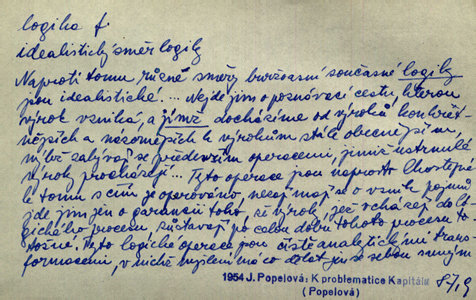 logika f.
idealistický směr logiky
Naproti tomu různé směry buržoasní současné logiky
jsou idealistické.... Nejde jim o poznávací cestu, kterou
výrok vzniká, a jímž docházíme od výroků konkrét-
nějších a názornějších k výrokům stále obecnějším,
nýbrž zabývají se především operacemi, jimiž ustrnulé
výroky procházejí... Tyto operace jsou naprosto lhostejné
k tomu s čím je operováno, nezajímají se o vznik pojmů
jde jim jen o garancii toho, že výroky, jež vcházejí do lo-
gického procesu, zůstávají po celou dobu tohoto procesu to-
tožné. Tyto logické operace jsou čistě analytickými trans
formacemi, v nichž myšlení má co dělat jen se sebou samým
1954 J. Popelová: K problematice Kapitálu
(Popelová)